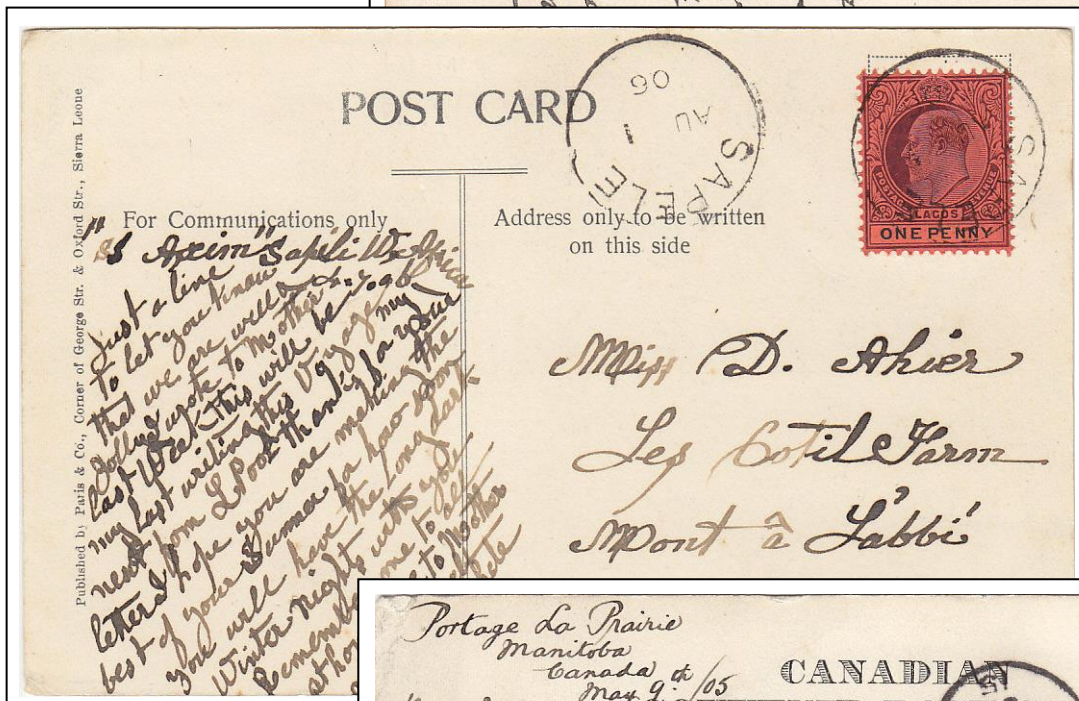 POST CARD
Published by Paris & Co., Corner of George Str. & Oxford Str., Sierra Leone
For Communications only
Address only to be written
on this side
SAPELE
AU 1
06
POSTAGE LAGOS REVENUE
ONE PENNY
"SS Axim" Sapli W. Africa
Just a line
to let you know
that we are well
wrote to Mother
last Week This will be my
my last writing this Voyage
next from L'pool thanks for your
letter I hope you are making the
best of your Summer for how soon
you will have the long dark
Winter nights with you
Rememb me to all
at ho to Mother
Miss D. Ahier
Les Cotil Farm
Mont à L'abbé
Portage La Prairie
Manitoba
Canada
May 9th /05
CANADIAN